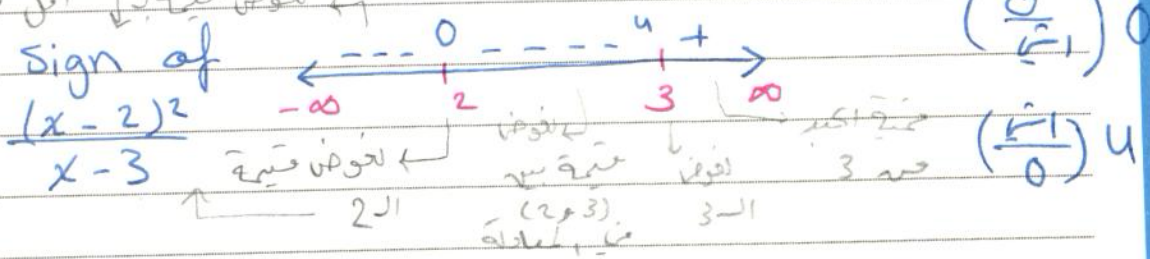 Sign of
--- 0 ---- u +
-∞ 2 3 ∞
(x - 2)²
x - 3
نعوض قيمة
الـ 2
نعوض
قيمة بين
(2 و 3)
في المعادلة
نعوض
الـ 3
قيمة اكبر
من 3
0
u
0